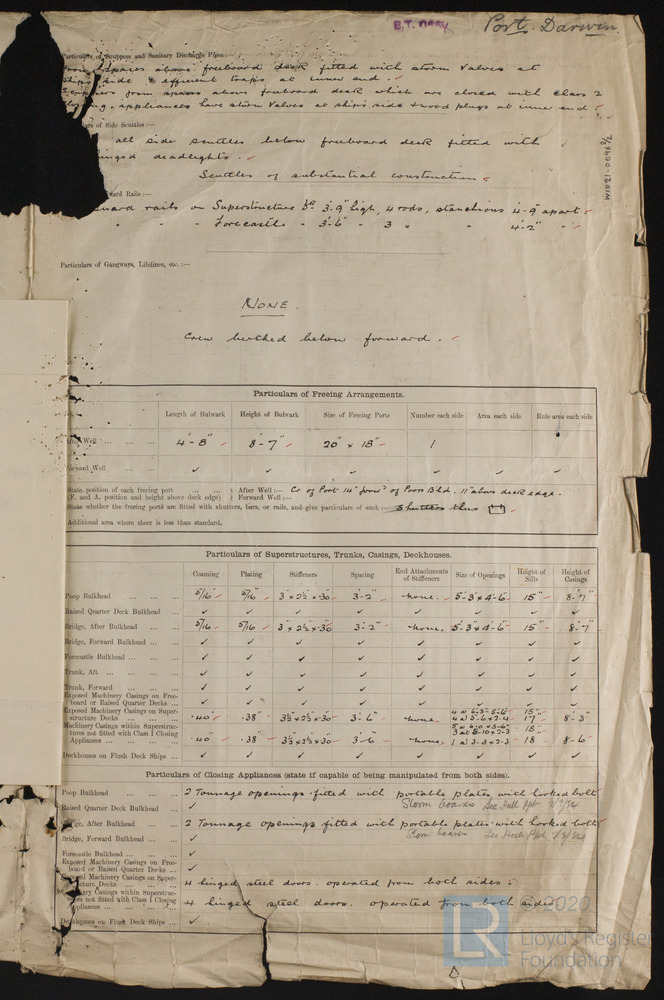 B.T. COPY
Port Darwin
W1021-0096 2/2
Particulars of Scuppers and Sanitary Discharge Pipes:—
spaces above freeboard deck fitted with storm valves at
ship's side & efficient traps at inner end.
from spaces above freeboard deck which are closed with class 2
closing appliances have storm valves at ship's side & wood plugs at inner end
of Side Scuttles:—
all side scuttles below freeboard deck fitted with
hinged deadlights.
Scuttles of substantial construction.
Guard Rails:—
Guard rails on Superstructure Dk 3'-9" high, 4 rods, stanchions 4'-9" apart
" " - Forecastle - 3'-6" - 3 " " 4'-2" "
Particulars of Gangways, Lifelines, etc.:—
NONE.
Crew berthed below forward.
Particulars of Freeing Arrangements.
Length of Bulwark Height of Bulwark Size of Freeing Ports Number each side Area each side Rule area each side
After Well ... ... ... 4'-8" 8'-7" 20" x 18" 1
Forward Well ✓ ✓ ✓ ✓ ✓ ✓
State position of each freeing port ... ... After Well:— Cr of Port 14" forwd of Poop Bhd. 11" above deck edge.
(F. and A. position and height above deck edge) Forward Well:—
State whether the freeing ports are fitted with shutters, bars, or rails, and give particulars of such:— Shutters thus
Additional area where sheer is less than standard.
Particulars of Superstructures, Trunks, Casings, Deckhouses.
Coaming Plating Stiffeners Spacing End Attachments of Stiffeners Size of Openings Height of Sills Height of Casings
Poop Bulkhead ... ... ... 5/16" 5/16" 3" x 2½" x .30 3'-2" none. 5'-3" x 4'-6" 15" 8'-7"
Raised Quarter Deck Bulkhead ... ✓ ✓ ✓ ✓ ✓ ✓ ✓ ✓
Bridge, After Bulkhead ... ... 5/16 5/16 3" x 2½" x .30 3'-2" none. 5'-3" x 4'-6" 15" 8'-7"
Bridge, Forward Bulkhead ... ... ✓ ✓ ✓ ✓ ✓ ✓ ✓ ✓
Forecastle Bulkhead ... ... ... ✓ ✓ ✓ ✓ ✓ ✓ ✓ ✓
Trunk, Aft ... ... ... ✓ ✓ ✓ ✓ ✓ ✓ ✓ ✓
Trunk, Forward ... ... ... ✓ ✓ ✓ ✓ ✓ ✓ ✓ ✓
Exposed Machinery Casings on Free-
board or Raised Quarter Decks ... ✓ ✓ ✓ ✓ ✓ ✓ ✓ ✓
Exposed Machinery Casings on Super-
structure Decks ... ... ... .40 .38" 3½ x 2½ x .30 3'-6" none. 15" 17" 8'-3"
Machinery Casings within Superstruc-
tures not fitted with Class I Closing
Appliances ... ... ... .40 .38 3½ x 2½ x .30 3'-6 none. 1 @ 3-3 x 2-3 18 8'-6"
Deckhouses on Flush Deck Ships ... ✓ ✓ ✓ ✓ ✓ ✓ ✓ ✓
Particulars of Closing Appliances (state if capable of being manipulated from both sides).
Poop Bulkhead ... ... ... 2 Tonnage openings fitted with portable plates with hooked bolts
Storm boards See Hull Rpt
Raised Quarter Deck Bulkhead ... ✓
Bridge, After Bulkhead ... ... 2 Tonnage openings fitted with portable plates with hooked bolts
Storm boards See Hull Rpt
Bridge, Forward Bulkhead ... ... ✓
Forecastle Bulkhead ... ... ... ✓
Exposed Machinery Casings on Free-
board or Raised Quarter Decks ... ✓
Exposed Machinery Casings on Super-
structure Decks ... ... ... 4 hinged steel doors. operated from both sides.
Machinery Casings within Superstruc-
tures not fitted with Class I Closing
Appliances ... ... ... 4 hinged steel doors. operated from both sides
Deckhouses on Flush Deck Ships ... ✓
© 2020
LR
Lloyd's Register
Foundation